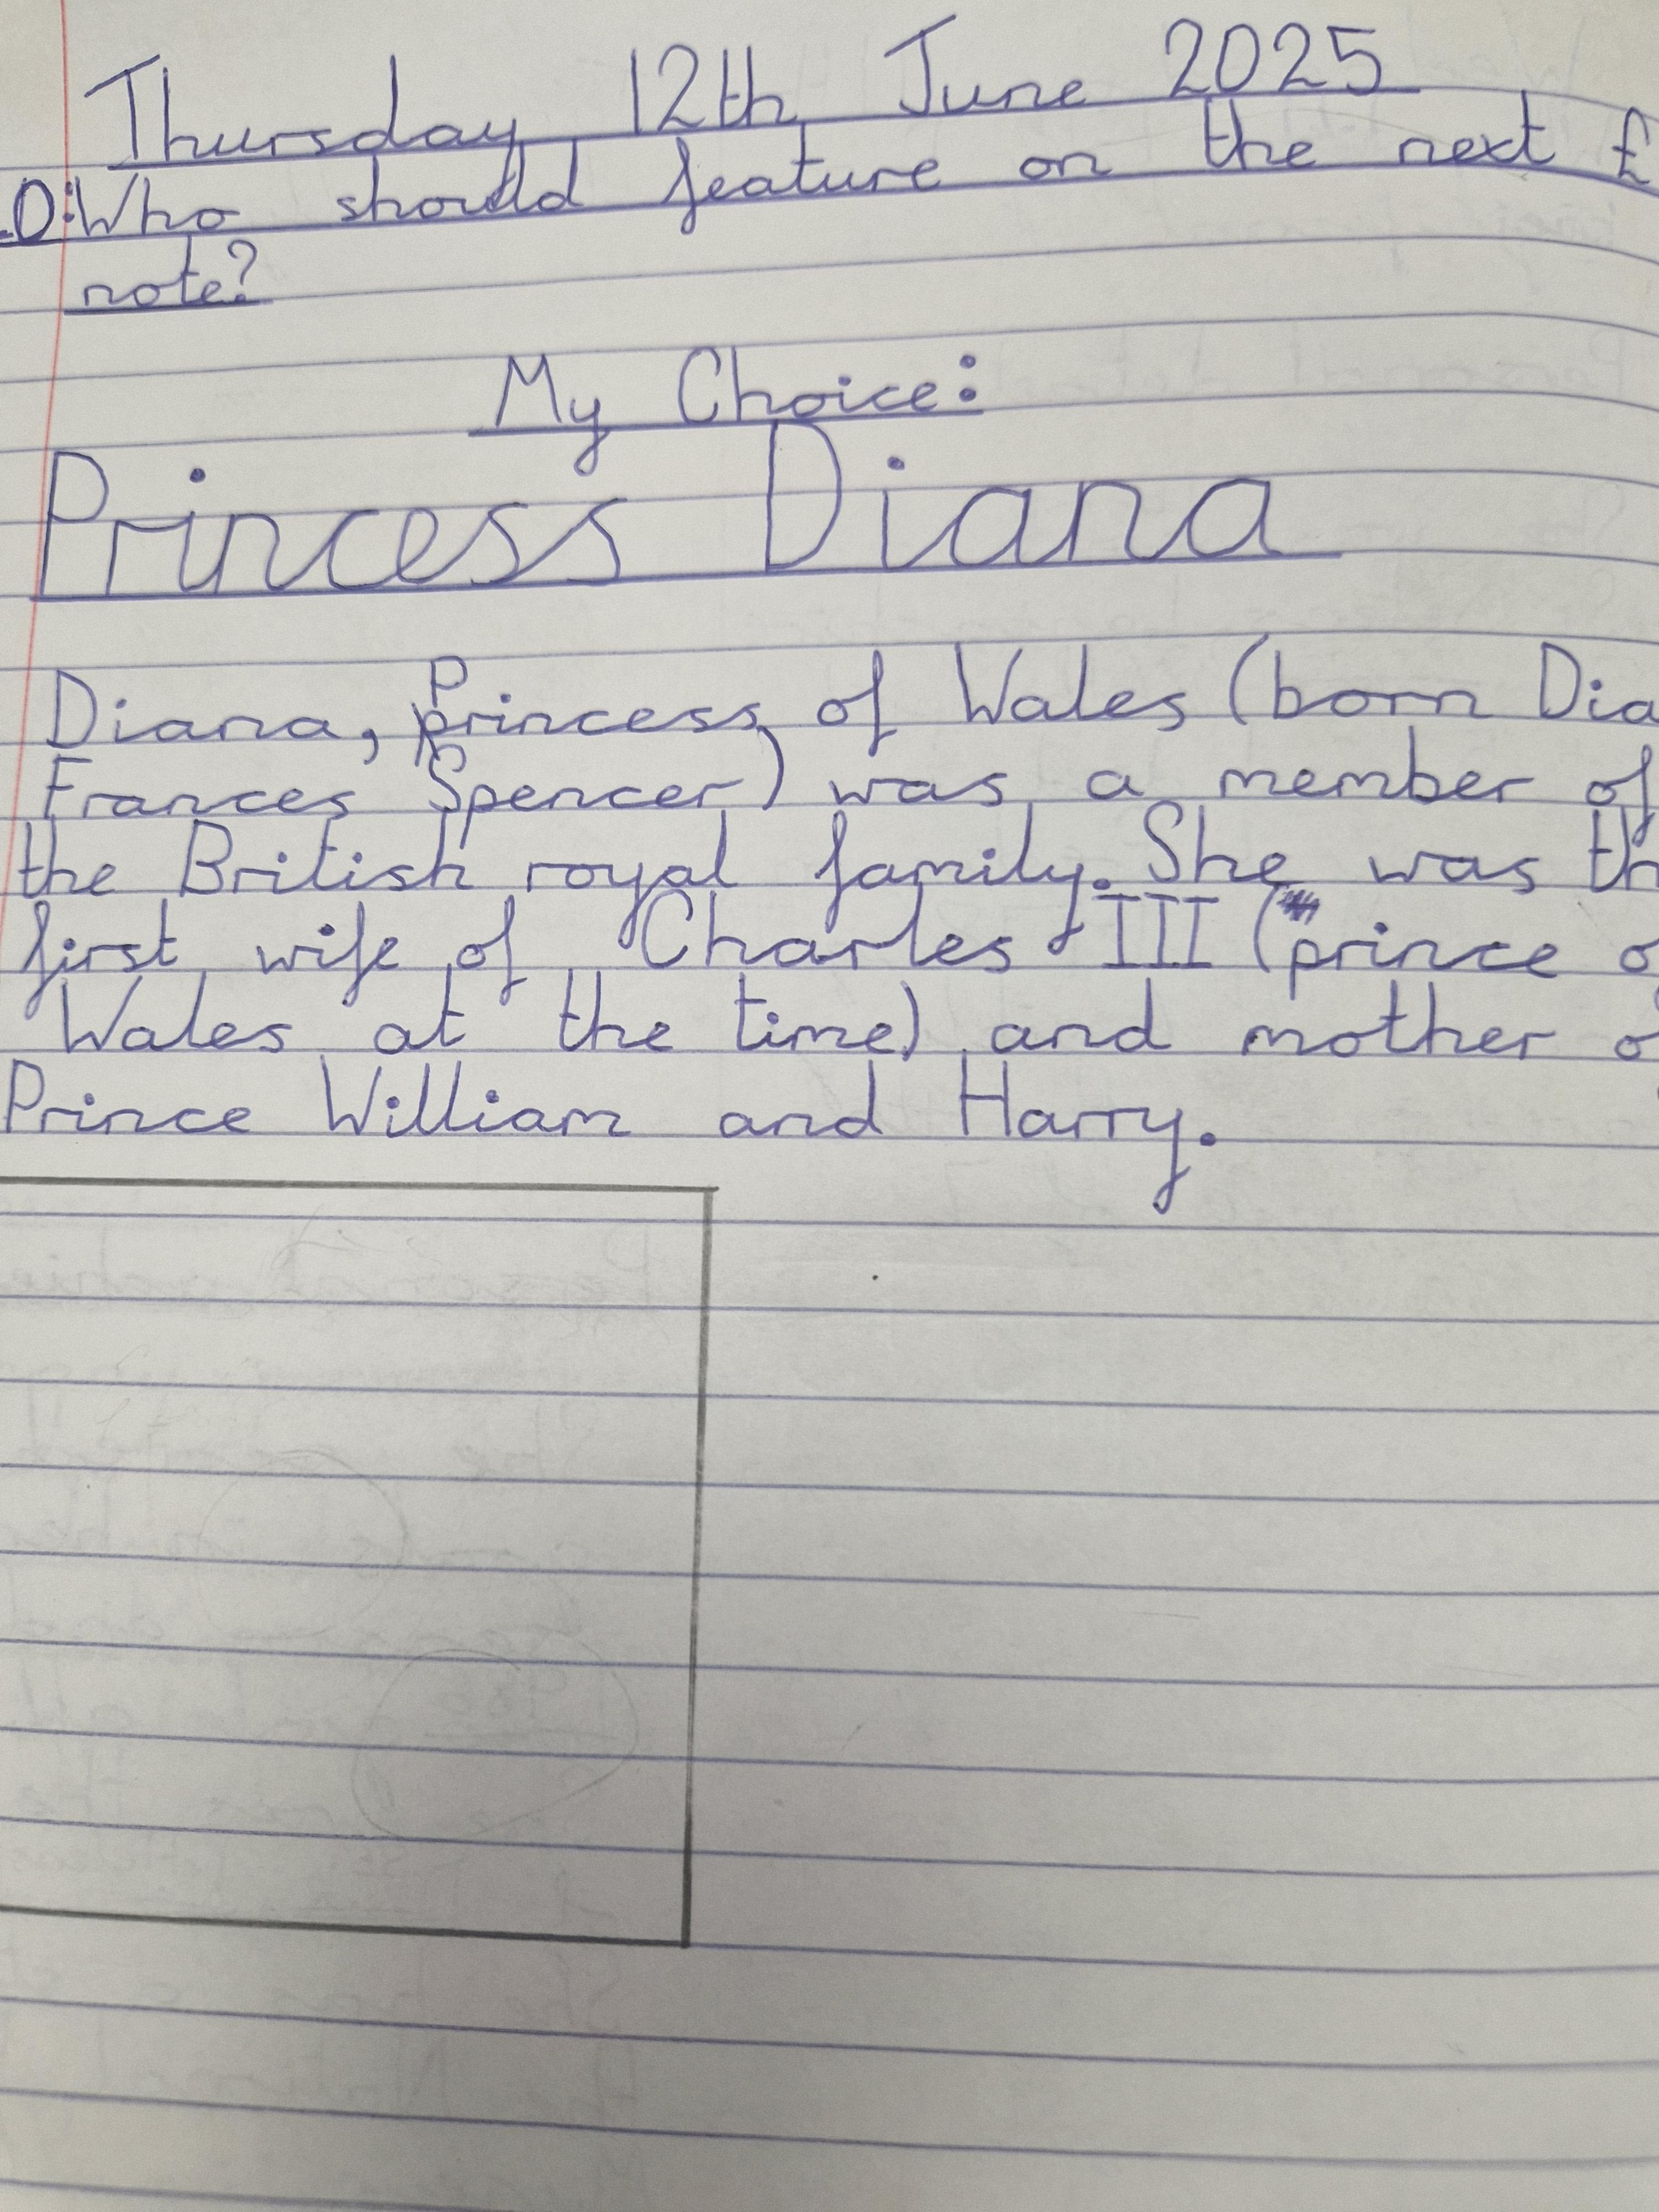 Thursday 12th June 2025
LO: Who should feature on the next £
note?
My Choice:
Princess Diana
Diana, Princess of Wales (born Dia
Frances Spencer) was a member of
the British royal family. She was th
first wife of Charles III (prince o
Wales at the time) and mother of
Prince William and Harry.